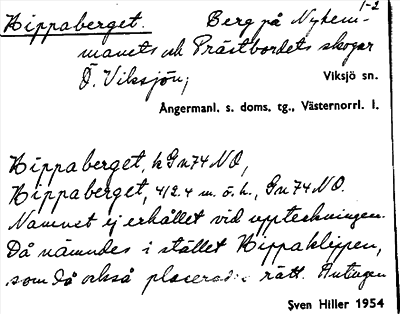 1-2
Hippaberget. Berg på Nyhem-
manets och Prästbordets skogar
Ö. Viksjön; Viksjö sn.
Ångermanl. s. doms. tg., Västernorrl. l.
Hippaberget, hGn74NO,
Hippaberget, 412.4 m. ö. h., Gn74NO.
Namnet ej erhållet vid uppteckningen.
Då nämndes i stället Hippaklippen,
som då också placerades rätt. Antagen
Sven Hiller 1954